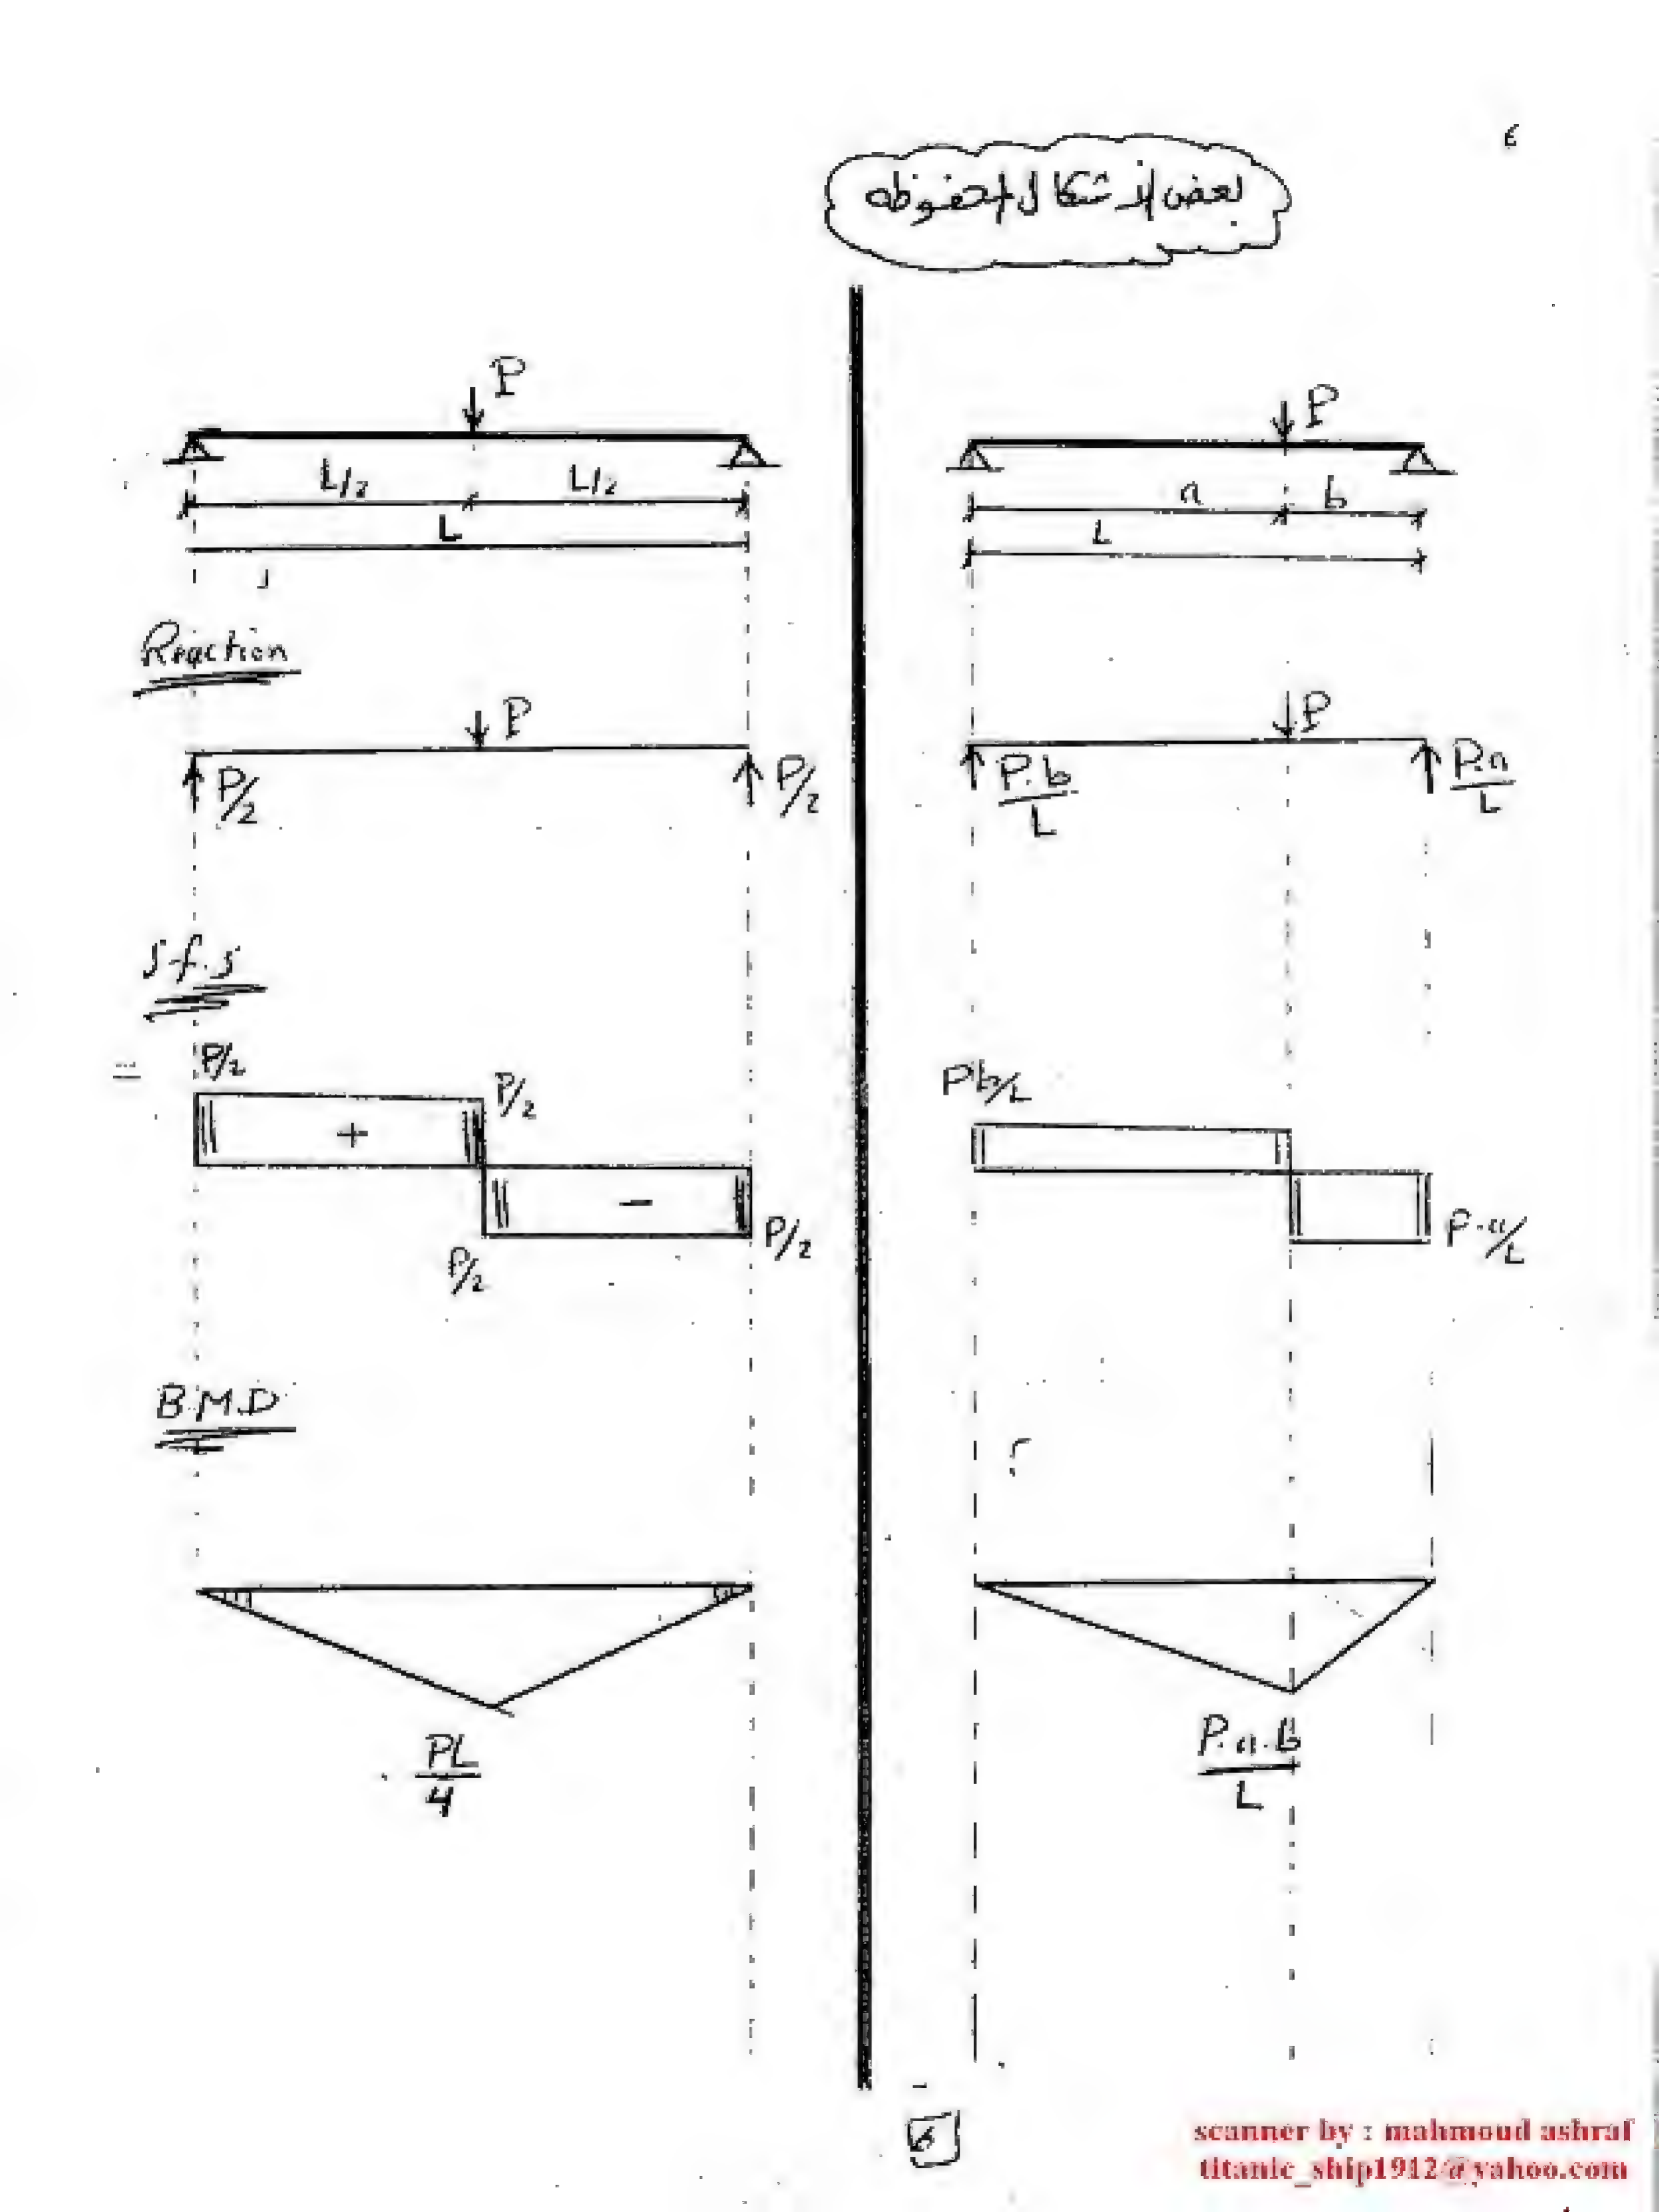 6
بعض الاشكال المحفوظه
P
L/2 L/2
L
Reaction
P
P/2 P/2
S.f.s
P/2 P/2
+ -
P/2 P/2
B.M.D
PL/4
P
a b
L
P
P.b/L P.a/L
Pb/L
P.a/L
P.a.b/L
6
scanner by : mahmoud ashraf
titanic_ship1912@yahoo.com